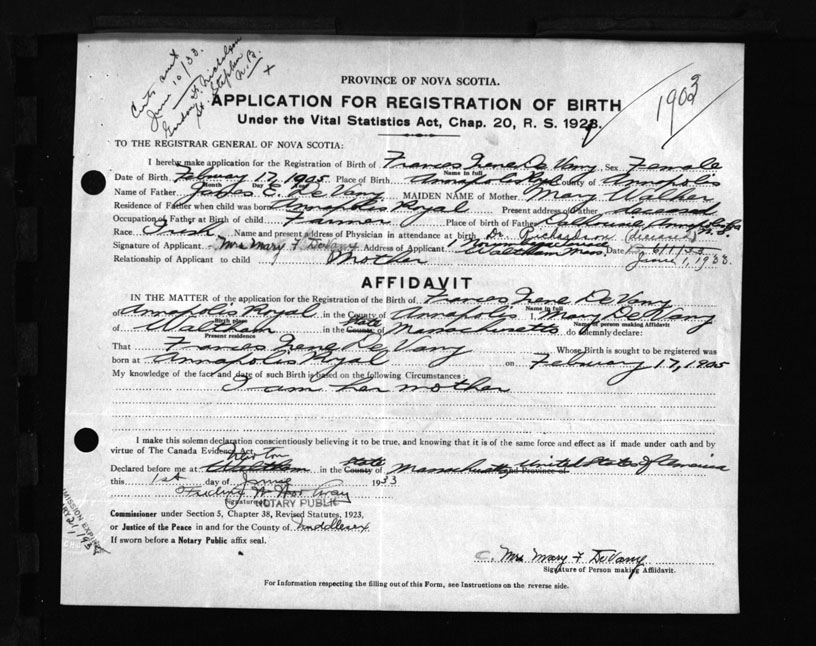 June 10/33.
St. Stephen
N.B.
1903
PROVINCE OF NOVA SCOTIA.
APPLICATION FOR REGISTRATION OF BIRTH
Under the Vital Statistics Act, Chap. 20, R. S. 1923.
TO THE REGISTRAR GENERAL OF NOVA SCOTIA:
I hereby make application for the Registration of Birth of Frances Irene De Vany Sex Female
Name in full
Date of Birth February 17, 1905 Place of Birth Annapolis Royal County of Annapolis
Month Day Year
Name of Father James E. De Vany MAIDEN NAME of Mother Mary Walker
Residence of Father when child was born Annapolis Royal Present address of Father deceased
Occupation of Father at Birth of child Farmer Place of birth of Father Dalhousie, Annapolis Co N.S.
Race Irish Name and present address of Physician in attendance at birth Dr. Richardson (deceased)
Signature of Applicant Mrs Mary F DeVany Address of Applicant Waltham Mass Date June 1, 1933.
Relationship of Applicant to child Mother
AFFIDAVIT
IN THE MATTER of the application for the Registration of the Birth of Frances Irene De Vany
Name in full
of Annapolis Royal in the County of Annapolis I, Mary De Vany
Birth place Name of person making Affidavit
of Waltham in the State County of Massachusetts do solemnly declare:
Present residence
That Frances Irene De Vany Whose Birth is sought to be registered was
born at Annapolis Royal on February 17, 1905
My knowledge of the fact and date of such Birth is based on the following Circumstances:
I am her mother
I make this solemn declaration conscientiously believing it to be true, and knowing that it is of the same force and effect as if made under oath and by
virtue of The Canada Evidence Act.
Newton
Declared before me at Waltham in the State County of Massachusetts United States of America
and Province of
this 1st day of June 1933
Signature
NOTARY PUBLIC
Commissioner under Section 5, Chapter 38, Revised Statutes, 1923,
or Justice of the Peace in and for the County of Middlesex
If sworn before a Notary Public affix seal.
C. Mrs Mary F DeVany
Signature of Person making Affidavit.
For Information respecting the filling out of this Form, see Instructions on the reverse side.